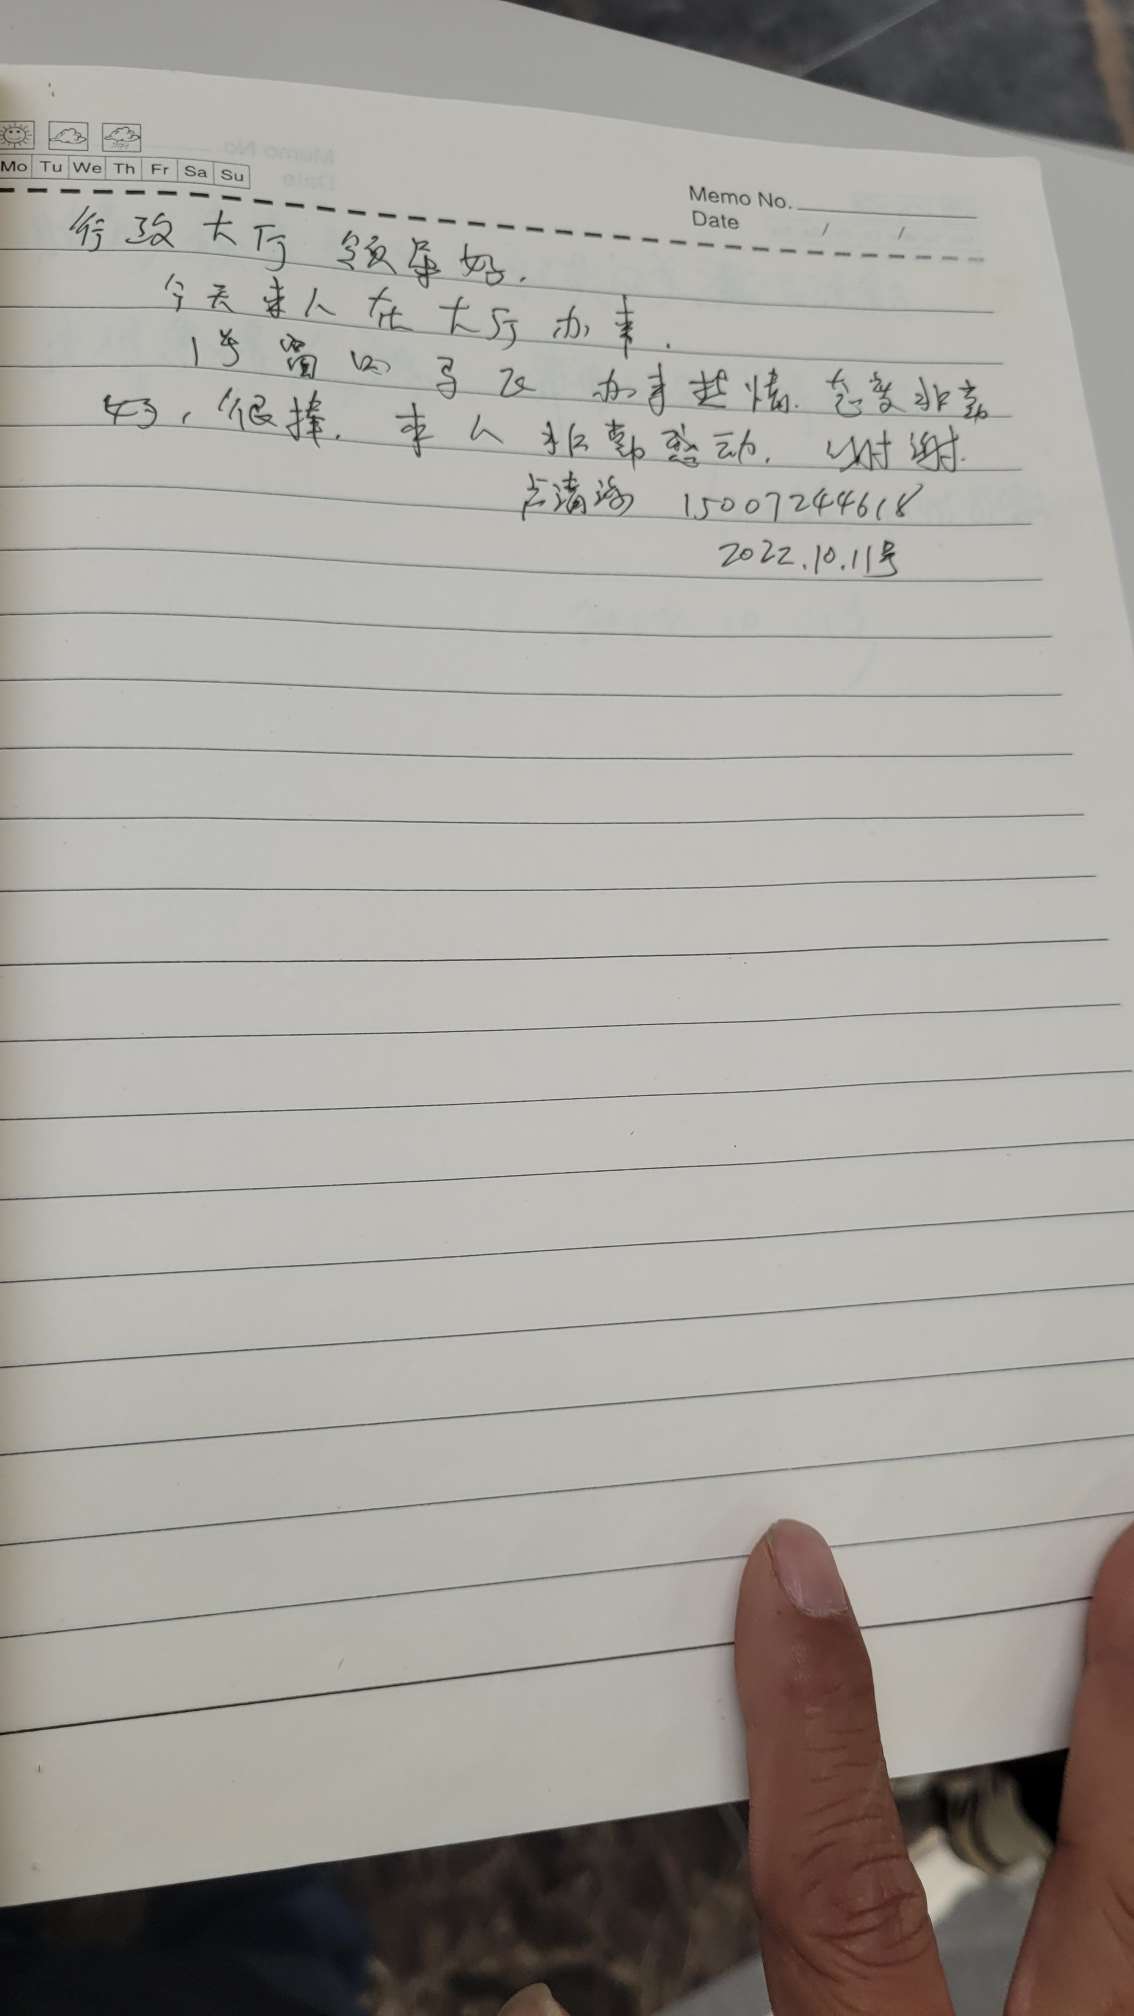 Mo Tu We Th Fr Sa Su
Memo No.
Date / /
行政大厅 领导好.
今天本人在大厅办事.
1号窗口 办事热情. 态度非常
好, 很棒. 本人非常感动. 谢谢.
15007244618
2022.10.11号